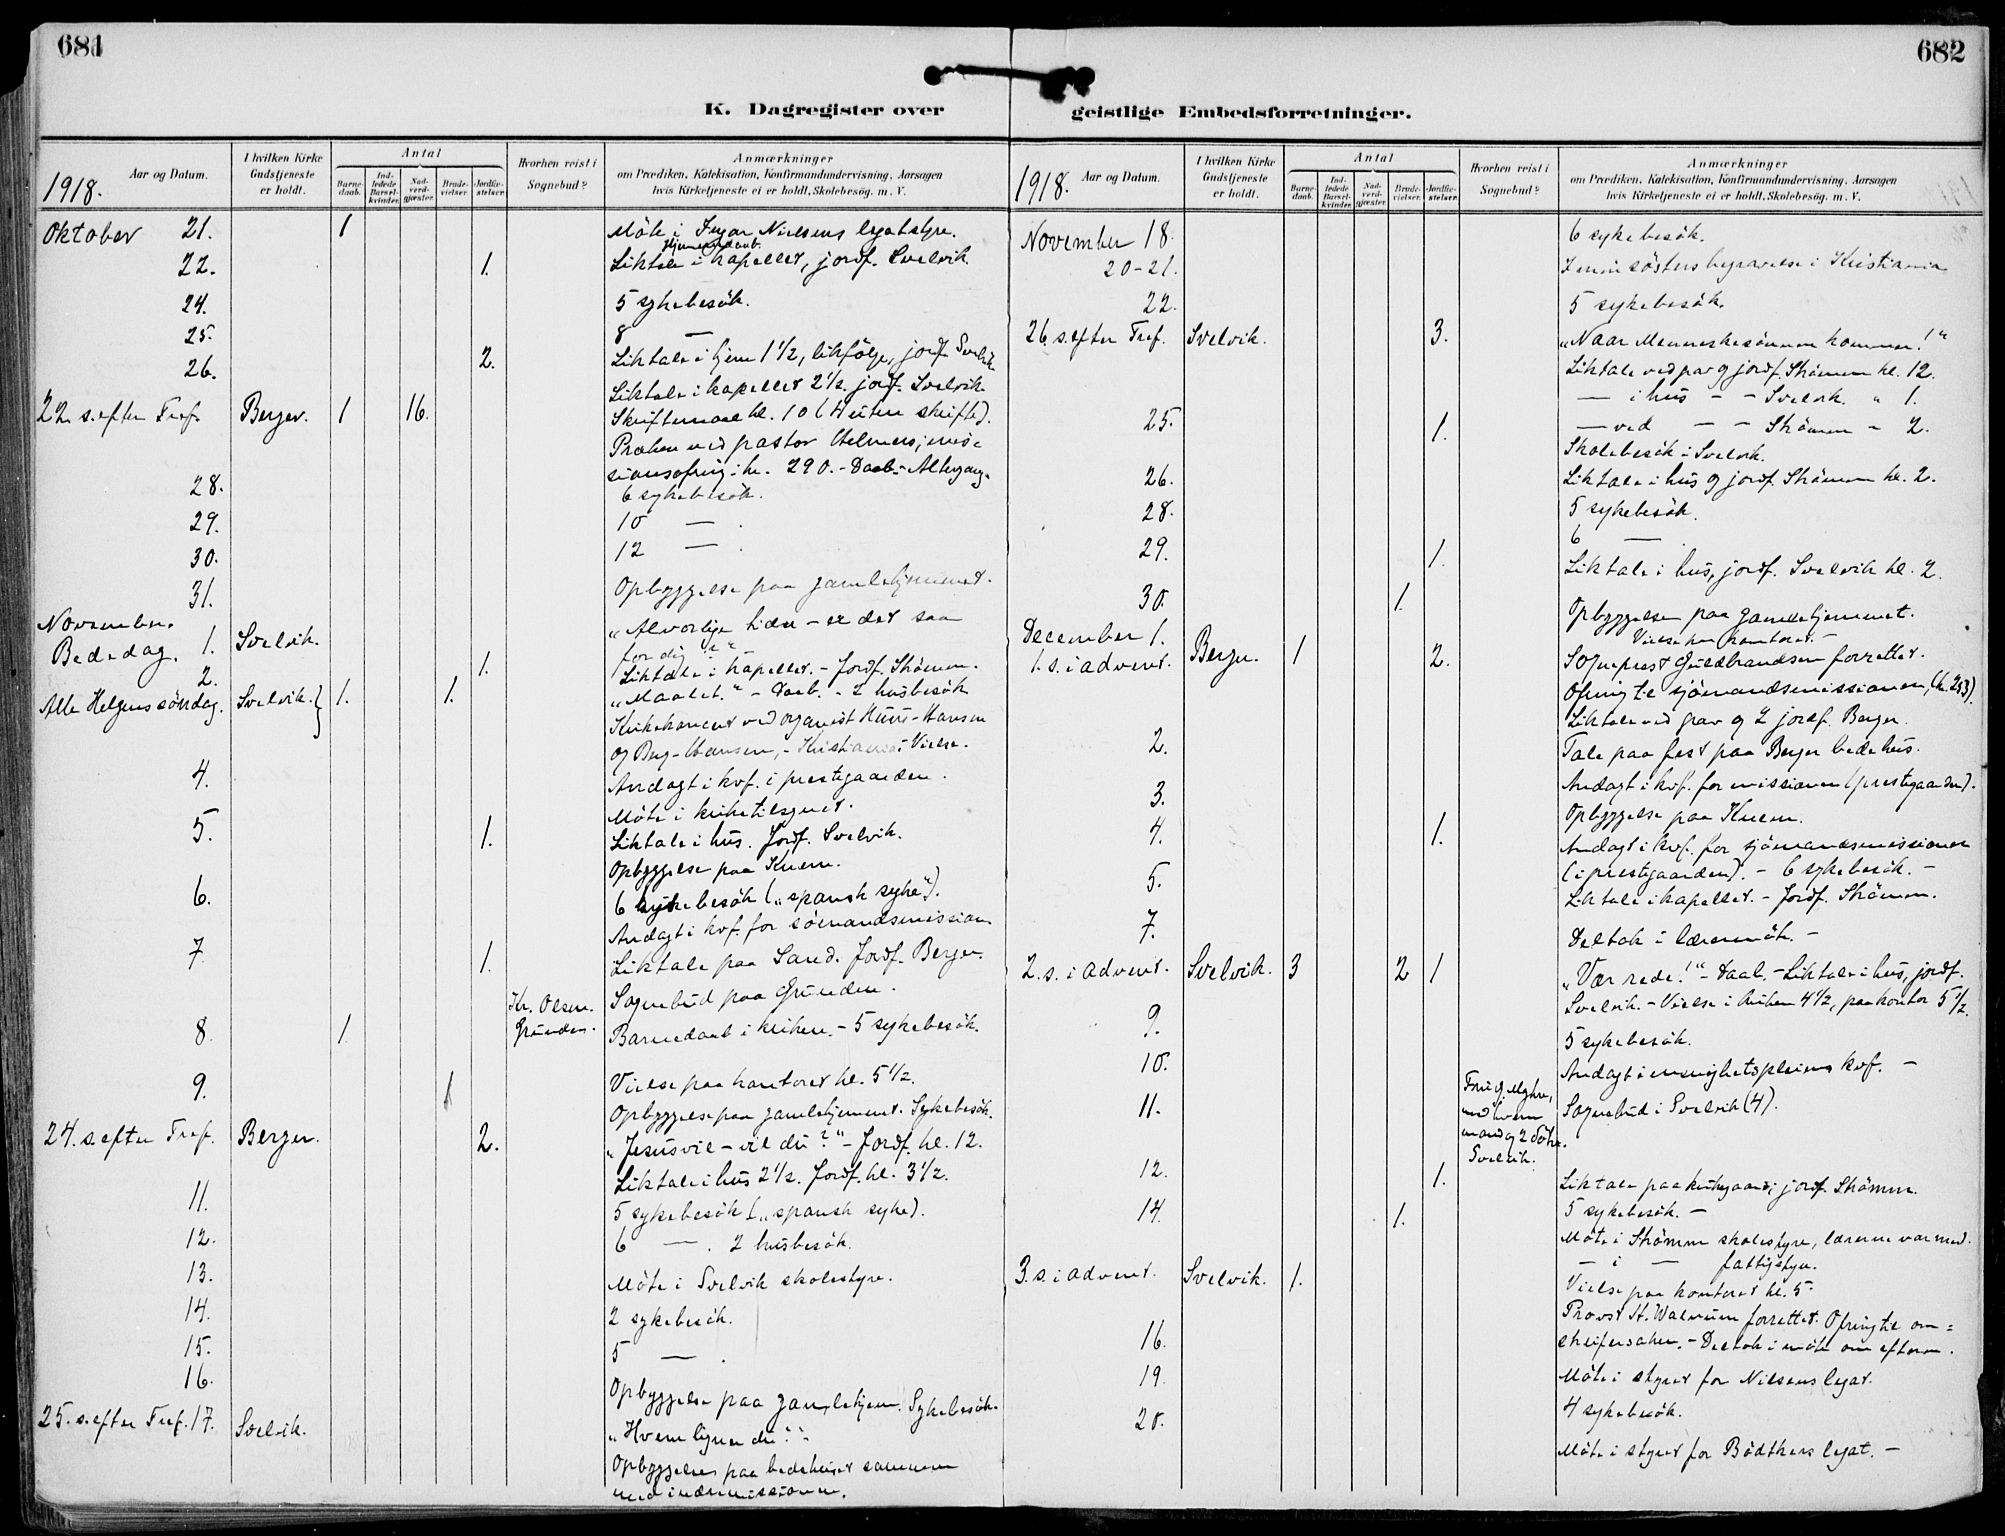 681
K. Dagregister over
1918.
Aar og Datum.
I hvilken Kirke Gudstjeneste er holdt.
Antal
Barne-daab.
Ind-ledede Barsel-kvinder.
Nad-verd-gjæster.
Brude-vielser.
Jordfæ-stelser.
Hvorhen reist i Sognebud?
Anmærkninger
om Prædiken, Katekisation, Konfirmandundervisning, Aarsagen
hvis Kirketjeneste ei er holdt, Skolebesøg. m. V.
Oktober 21. 1 Möte i Nielsens legatstyre.
Hjemmedaab.
22. 1. Liktale i kapellet, jordf. Svelvik
24. 5 sykebesök.
25. 8 —
26. 2. Liktale i hjem 1 1/2, likfölge, jordf. Svelvik
Liktale i kapellet 2 1/2. jordf. Svelvik.
22. s. efter Tref. Berger. 1 16. Skriftemaal kl. 10 (4 uten skrifte).
Præken ved pastor
sionsofring: kr. 290. - Daab. - Altergang.
28. 6 sykebesök.
29. 10 — .
30. 12 — .
31. Opbyggelse paa gamlehjemmet.
November.
Bededag. 1. Svelvik. "Alvorlige tider - er det saa
for dig?"
2. 1. Liktale i kapellet. - Jordf. Strömm.
Alle Helgens söndag. Svelvik. 1. 1. "Maalet." - Daab. - 2 husbesök
Kirkekoncert ved organist Huus-Hansen
og Berg-Hansen, - Kristiania. Vielse.
4. Andagt i kvf. i prestegaarden.
Möte i kirketilsynet.
5. 1. Liktale i hus. Jordf. Svelvik.
Opbyggelse paa Knem.
6. 6 sykebesök ("spansk syke").
Andagt i kvf. for sömandsmission
7. 1. Liktale paa Sand. Jordf. Berger.
Kr. Olsen. Grunden. Sognebud paa Grunden.
8. 1. Barnedaab i kirken. - 5 sykebesök.
9. 1 Vielse paa kontoret kl. 5 1/2.
Opbyggelse paa gamlehjemmet. Sykebesök.
24. s. efter Tref. Berger. 2. "Jesus vil - vil du?" - Jordf. kl. 12.
Liktale i hus 2 1/2. Jordf. kl. 3 1/2.
11. 5 sykebesök ("spansk syke).
12. 6 — . 2 husbesök.
13. Möte i Svelvik skolestyre.
14. 2 sykebesök.
15. 5 — .
16. Opbyggelse paa gamlehjem. Sykebesök.
25. s. efter Tref. 17. Svelvik. "Hvem ligner du?".
Opbyggelse paa bedehuset sammen
med indremissionen.
682
geistlige Embedsforretninger.
1918.
Aar og Datum.
I hvilken Kirke Gudstjeneste er holdt.
Antal
Barne-daab.
Ind-ledede Barsel-kvinder.
Nad-verd-gjæster.
Brude-vielser.
Jordfæ-stelser.
Hvorhen reist i Sognebud?
Anmærkninger
om Prædiken, Katekisation, Konfirmandundervisning, Aarsagen
hvis Kirketjeneste ei er holdt, Skolebesøg. m. V.
November 18. 6 sykebesök.
20-21. I min søsters begravelse i Kristiania
22. 5 sykebesök.
26. s. efter Tref. Svelvik. 3. "Naar Menneskesønnen kommer!"
Liktale ved grav og jordf. Strömm kl. 12.
— i hus - - Svelvik. " 1.
— ved - - Strömm - 2.
25. 1. Skolebesök i Svelvik.
26. Liktale i hus og jordf. Strömm kl. 2.
28. 5 sykebesök.
6 —
29. 1. Liktale i hus, jordf. Svelvik kl. 2.
30. 1. Opbyggelse paa gamlehjemmet.
Vielse paa kontoret. -
December 1.
1. s. i advent. Berger. 1 2. Sogneprest Guldbrandsen forrettet.
Ofring til sjömandsmissionen, (kr. 253).
Liktale ved grav og 2 jordf. Berger.
2. Tale paa fest paa Berger bedehus.
Andagt i kvf. for missionen (prestegaarden).
3. Opbyggelse paa Knem.
4. 1. Andagt i kvf. for sjömandsmissionen
(i prestegaarden). - 6 sykebesök. -
5. Liktale i kapellet. - Jordf. Strömm.
7. Deltok i læremöte. -
2. s. i advent. Svelvik. 3 2 1 "Vær rede!" - Daab. - Liktale i hus, jordf.
Svelvik. - Vielse i kirken 4 1/2, paa kontor 5 1/2.
9. 5 sykebesök.
10. Andagt i menighetspleiens kvf. -
11. Sognebud i Svelvik (4).
mand og 2 døtre.
Svelvik.
12. 1. Liktale paa kirkegaard, jordf. Strömm.
14. 1. 5 sykebesök. -
Möte i Strömm skolestyre, lærerne var med.
- i — fattigstyre.
Vielse paa kontoret kl. 5.
3. s. i advent. Svelvik. 1. Provst H. Walnum forrettet. Ofring til
Deltok i möte om efterm.
16. Möte i styret for Nielsens legat.
19. 4 sykebesök.
20. Möte i styret for Bödtkers legat. -